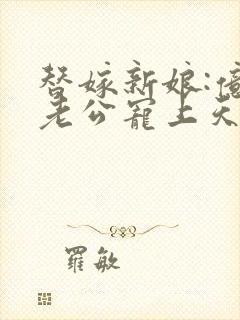 替嫁新娘:億
老公寵上天
羅敏